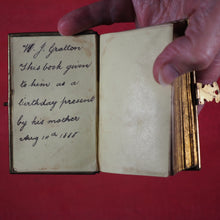 W. J. Gratton
This book given
to him as a
birthday present
by his mother
Aug 10th 1888